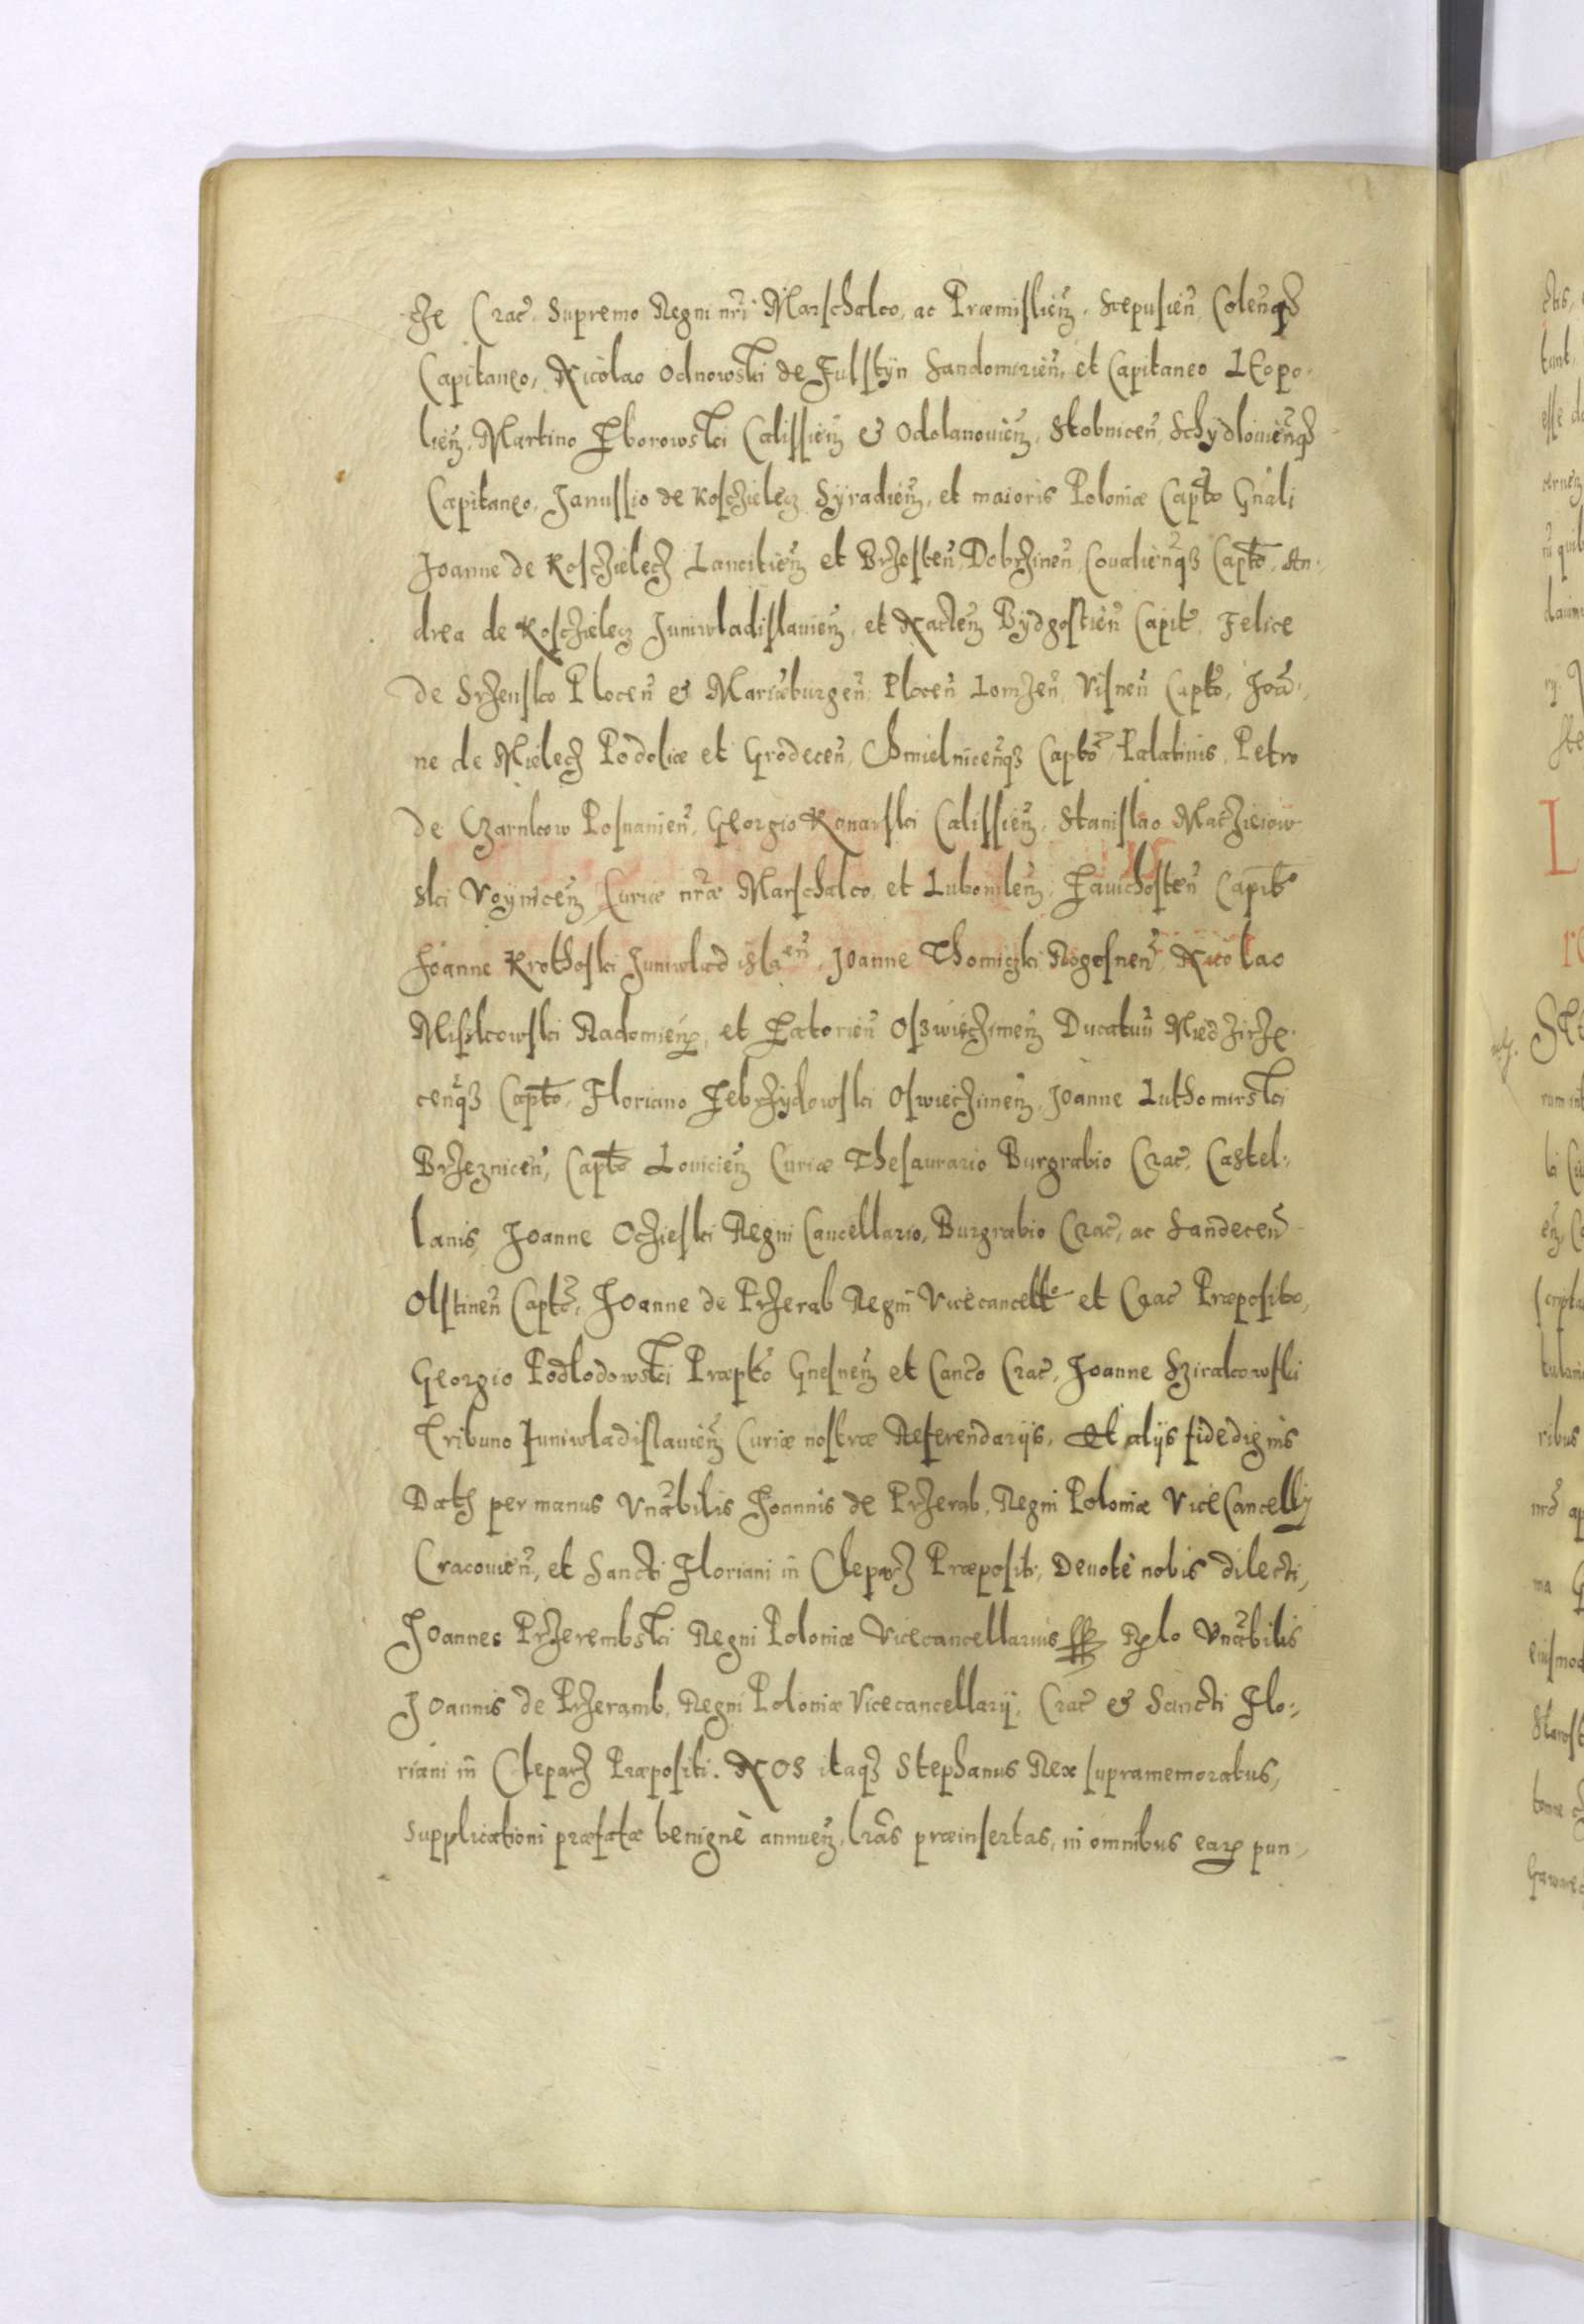 że Crac̃. Supremo Regni nr̃i Marschalco, ac Præmisłień. Scepusień, Colenqȝ
Capitaneo, Nicolao Odnowski de Fulstÿn Sandomirień, et Capitaneo LEopo-
lień, Martino Zborowski Calissień & Odolanouień, Stobniceñ, Schÿdlouieñqȝ
Capitaneo, Janussio de Koscżielecz Sÿradień, et maioris Poloniæ Capto Gñali
Joanne de Koscżielecż Lancitień et Brżesteñ, Dobrżineñ, Coualieñqȝ Capto, An-
drea de Koscżielecz Juniwladislauień, et Nacleń Bÿdgostieñ Capit̃, Felice
de Srżensko Ploceñ & Mariæburgeñ. Ploceñ Lomżeñ, Visneñ Capto, Joã-
ne de Mielecż Podoliæ et Grodeceñ, Chmielniceñqȝ Capto, Palatinis, Petro
de Czarnkow Posnanieñ, Georgio Konarski Calissień, Stanislao Macżieiow-
ski Voyniceń, Curiæ nr̃æ Marschalco, et Lubomleń, Zauichosteñ Capito
Joanne Krothoski Juniwladislaeñ, Joanne Thomiczki Rogosneñ, Nicolao
Misskowski Radomień, et Zatorieñ Osswiecżimeń Ducatuũ Miedżirże-
ceñqȝ Capto, Floriano Zebrżÿdowski Oswiecżimeń, Joanne Luthomirski
Brżezniceñ, Capto Louicień Curiæ Thesaurario Burgrabio Crac̃, Castel-
lanis, Joanne Ocżieski Regni Cancellario, Burgrabio Crac̃, ac Sandeceñ
Olstineñ Capto, Joanne de Prżerab Regni Vicecancellto et Crac̃ Præposito,
Georgio Podlodowski Præpto Gnesneń et Canco Crac̃, Joanne
Tribuno Juniwladislauień Curiæ nostræ Referendarijs, Et alijs fide dignis
Datȝ per manus Vnãbilis Joannis de Prżerab, Regni Poloniæ ViceCancellij
Cracouień, et Sancti Floriani in Cleparż Præpositi, Deuotè nobis dilecti,
Joannes Prżerembski Regni Poloniæ Vicecancellarius sst. Rlo Vnãbilis
Joannis de Prżeramb, Regni Poloniæ Vicecancellarij, Crac̃ & Sancti Flo-
riani in Cleparż Præpositi. NOS itaqȝ Stephanus Rex supramemoratus,
Supplicationi præfatæ benignè annueń, lr̃as præinsertas, in omnibus earꝝ pun-